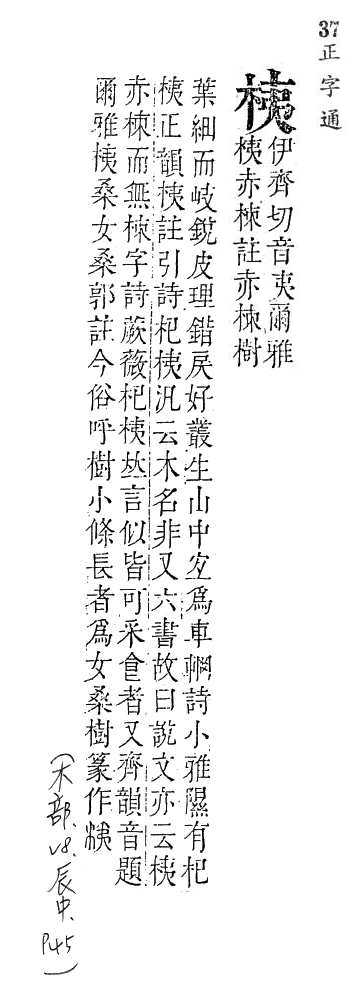 37
正字通
桋
伊齊切音夷爾雅
桋赤梀註赤梀樹
葉細而岐銳皮理錯戾好叢生山中㝐爲車輞詩小雅隰有杞
桋正韻桋註引詩杞桋汎云木名非又六書故曰說文亦云桋
赤梀而無梀字詩蕨薇杞桋𠀤言似皆可采食者又齊韻音題
爾雅桋桑女桑郭註今俗呼樹小條長者爲女桑樹篆作
(木部.v8.辰中.
P45)